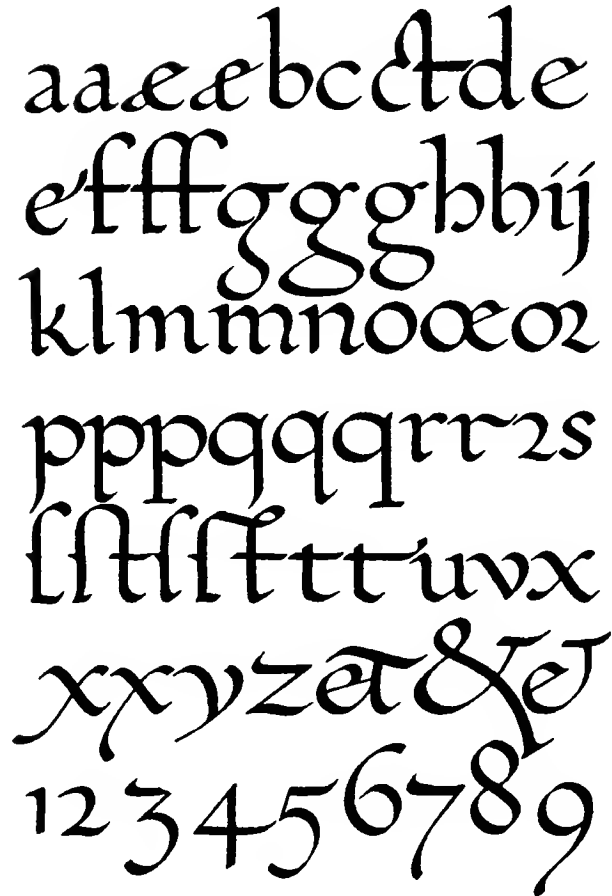 aaææbcctde
efffggghhij
klmmnoœoꝛ
pppqqqrrꝛs
ſſtſſſtttuvx
xxyzet&&
123456789